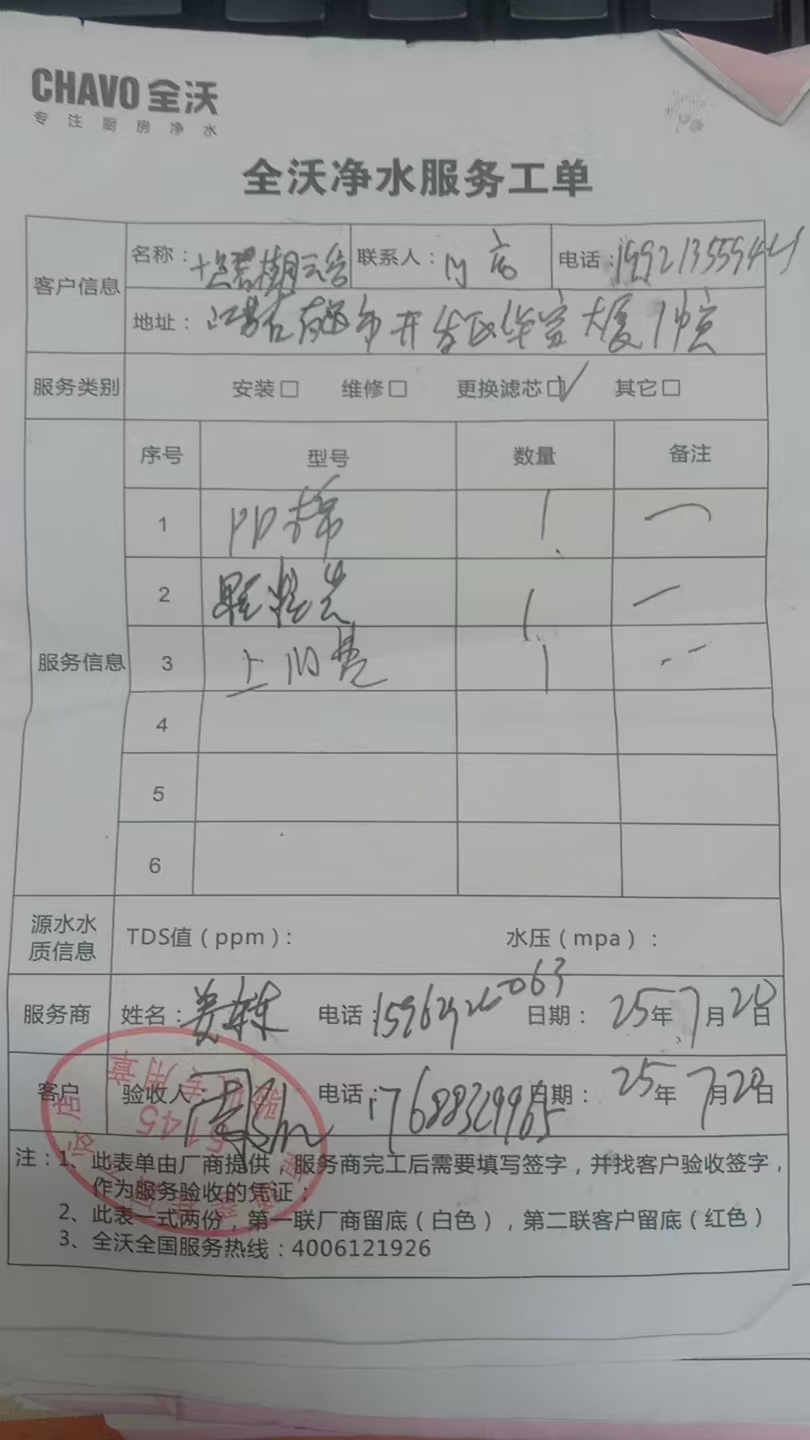 CHAVO 全沃
专注厨房净水
全沃净水服务工单
客户信息 名称： 联系人：门店 电话：
地址：江苏省 市开发区华宝大厦1幢
服务类别 安装□ 维修□ 更换滤芯□✓ 其它□
服务信息 序号 型号 数量 备注
1 PP棉 1 —
2 颗粒炭 1 —
3 1 --
4
5
6
源水水质信息 TDS值（ppm）： 水压（mpa）：
服务商 姓名：姜东 电话： 日期：25年7月28日
客户 验收人： 电话：17688329965 日期：25年7月28日
注：1、此表单由厂商提供，服务商完工后需要填写签字，并找客户验收签字，
作为服务验收的凭证；
2、此表一式两份，第一联厂商留底（白色），第二联客户留底（红色）
3、全沃全国服务热线：4006121926
5145
专用章